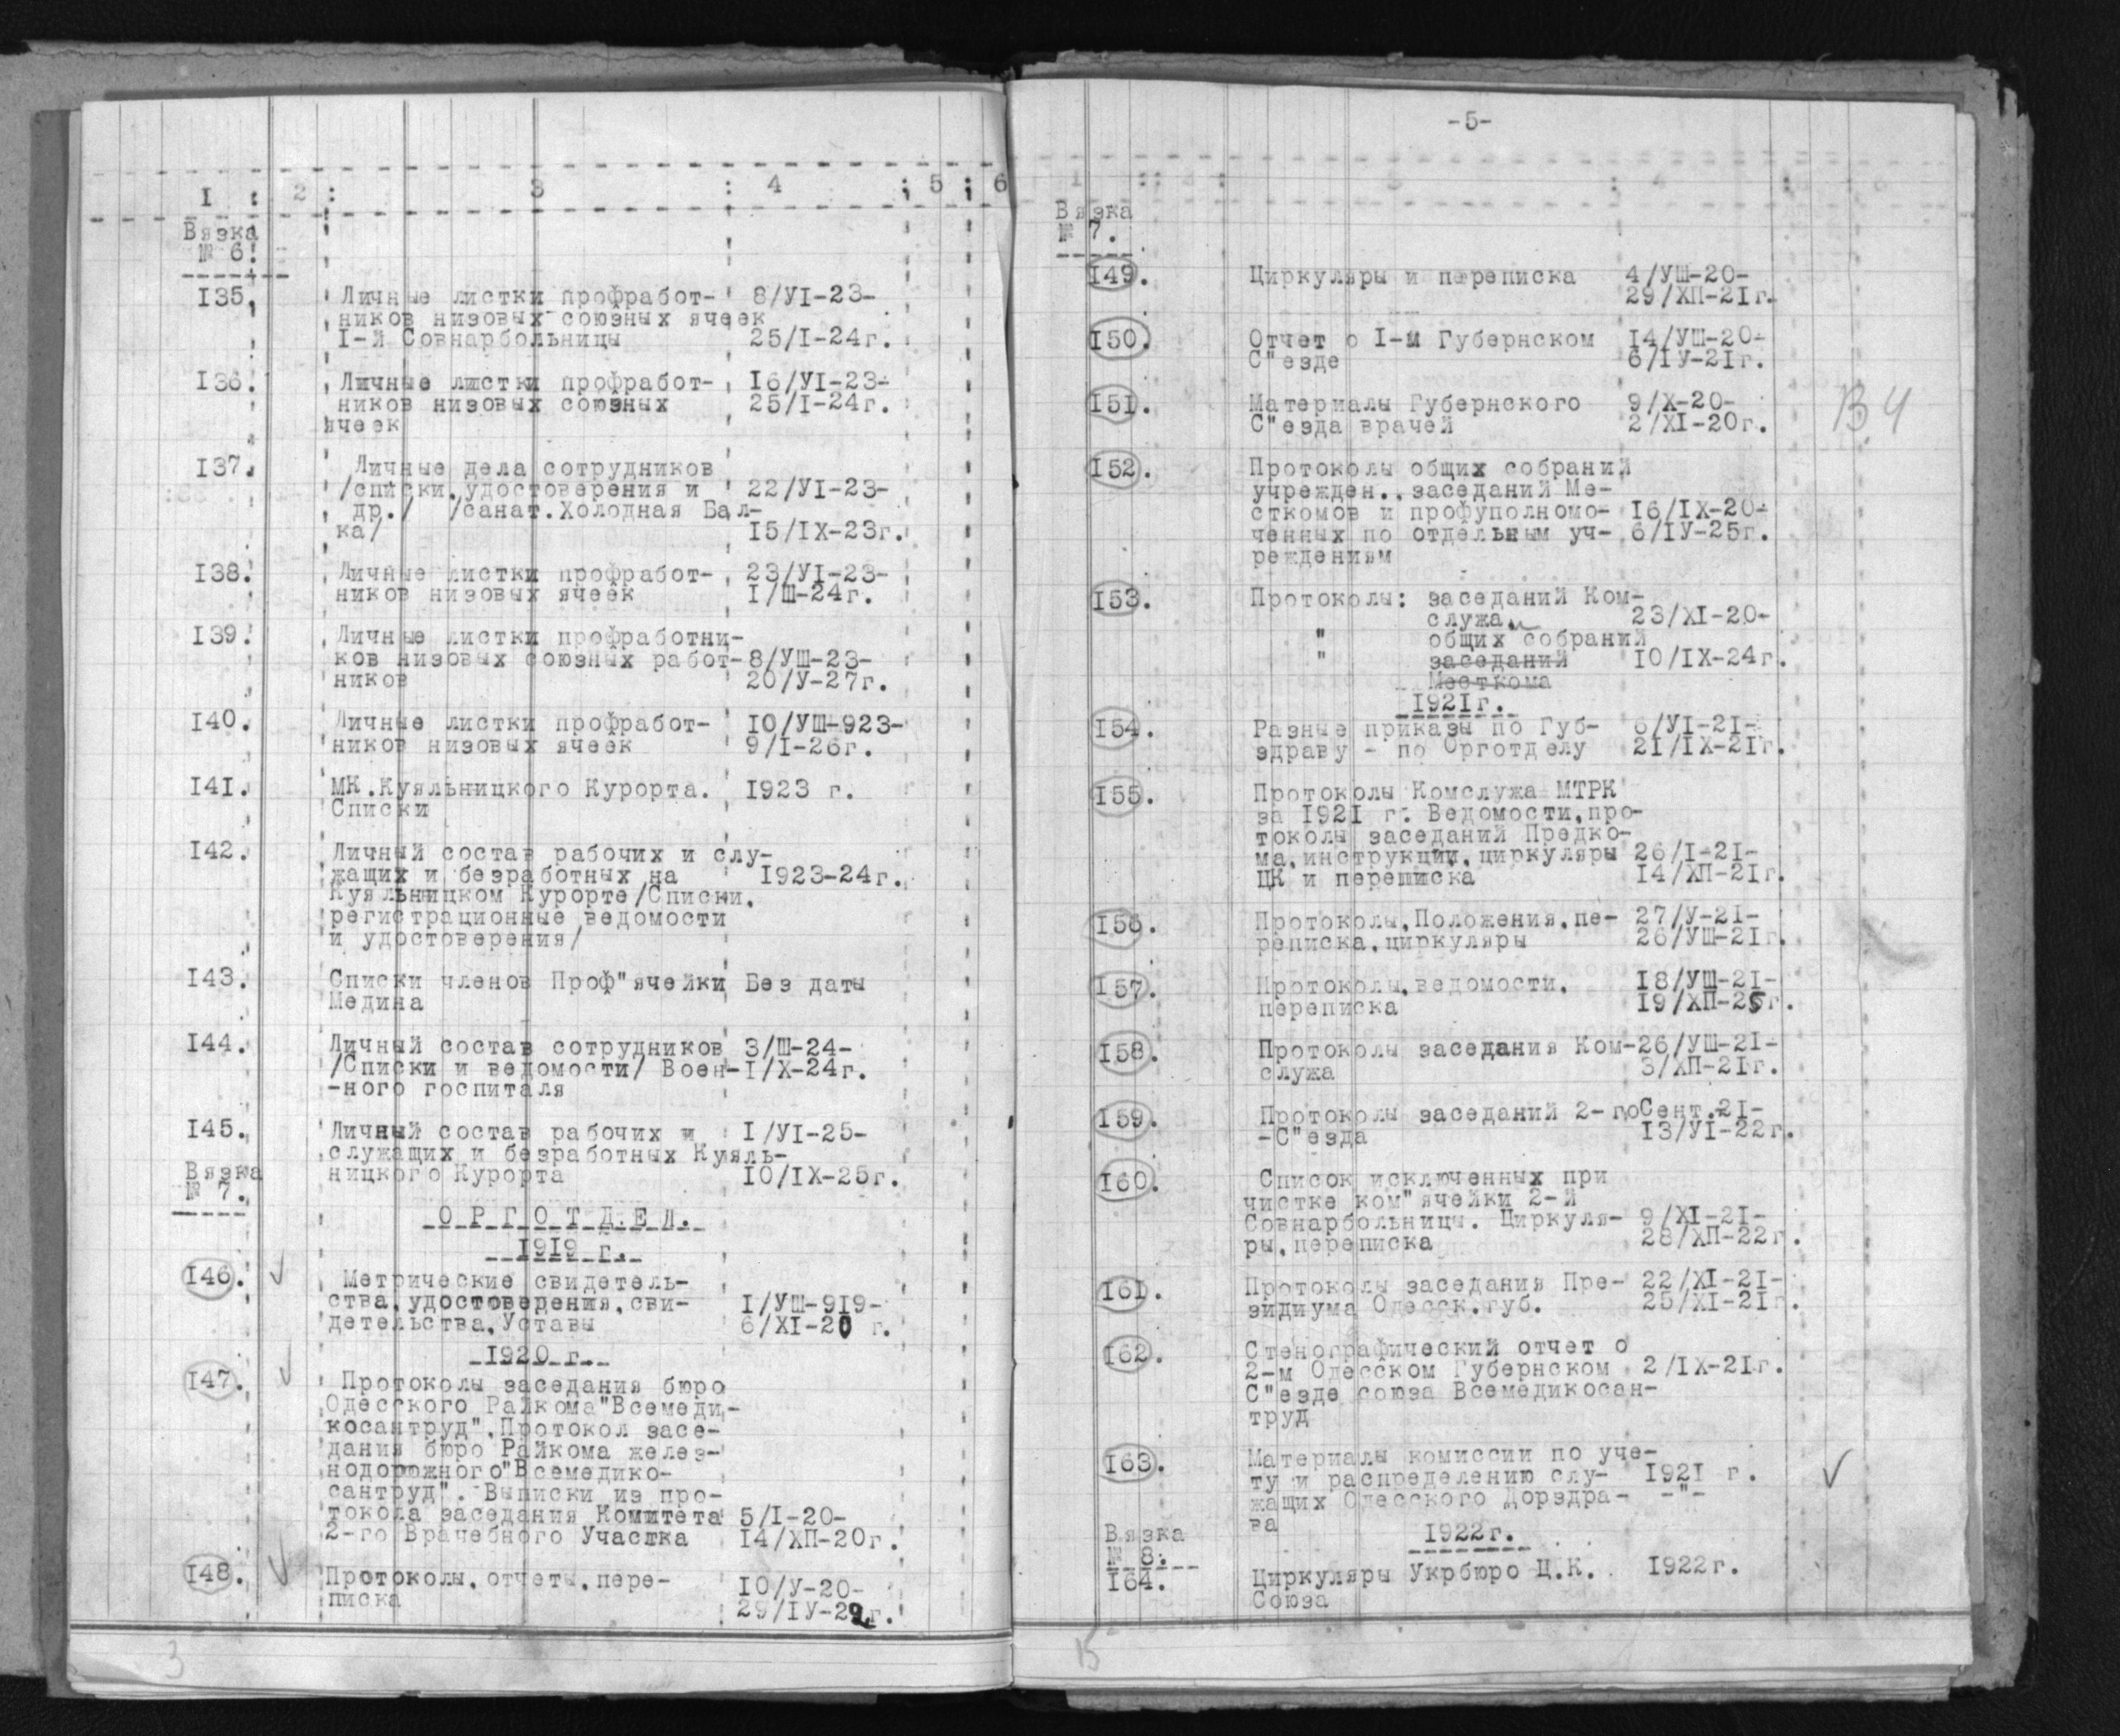 I : 2 : 3 : 4 : 5 : 6
Вязка
№ 6.
I35. Личные листки профработ- 8/УI-23-
ников низовых союзных ячеек
I-й Совнарбольницы 25/I-24г.
I36. Личные листки профработ- I6/УI-23-
ников низовых союзных 25/I-24г.
ячеек
I37. Личные дела сотрудников
/списки,удостоверения и 22/УI-23-
др./ /санат.Холодная Бал-
ка/ I5/IX-23г.
I38. Личные листки профработ- 23/УI-23-
ников низовых ячеек I/Ш-24г.
I39. Личные листки профработни-
ков низовых союзных работ- 8/УШ-23-
ников 20/У-27г.
I40. Личные листки профработ- I0/УШ-923-
ников низовых ячеек 9/I-26г.
I4I. МК.Куяльницкого Курорта. I923 г.
Списки
I42. Личный состав рабочих и слу-
жащих и безработных на I923-24г.
Куяльницком Курорте/Списки,
регистрационные ведомости
и удостоверения/
I43. Списки членов Проф"ячейки Без даты
Медина
I44. Личный состав сотрудников 3/Ш-24-
/Списки и ведомости/ Воен- I/X-24г.
-ного госпиталя
I45. Личный состав рабочих и I/УI-25-
служащих и безработных Куяль-
Вязка ницкого Курорта I0/IX-25г.
№ 7.
О Р Г О Т Д Е Л.
I9I9 г.
I46. Метрические свидетель-
ства,удостоверения,сви- I/УШ-9I9-
детельства,Уставы 6/XI-20 г.
I920 г.
I47. Протоколы заседания бюро
Одесского Райкома"Всемеди-
косантруд".Протокол засе-
дания бюро Райкома желез-
нодорожного"Всемедико-
сантруд". Выписки из про-
токола заседания Комитета 5/I-20-
2-го Врачебного Участка I4/ХП-20г.
I48. Протоколы,отчеты,пере- I0/У-20-
писка 29/IУ-29г.
3
-5-
Вязка
№ 7.
I49. Циркуляры и переписка 4/УШ-20-
29/ХП-2Iг.
I50. Отчет о I-м Губернском I4/УШ-20-
С"езде 6/IУ-2Iг.
I5I. Материалы Губернского 9/X-20-
С"езда врачей 2/XI-20г.
В4
I52. Протоколы общих собраний
учрежден.,заседаний Ме-
сткомов и профуполномо- I6/IX-20-
ченных по отдельным уч- 6/IУ-25г.
реждениям
I53. Протоколы: заседаний Ком-
служа и 23/XI-20-
" общих собраний
" заседаний I0/IX-24г.
Месткома
I92Iг.
I54. Разные приказы по Губ- 6/УI-2I-
здраву - по Орготделу 2I/IX-2Iг.
I55. Протоколы Комслужа МТРК
за I92I г. Ведомости,про-
токолы заседаний Предко-
ма,инструкции,циркуляры 26/I-2I-
ЦК и переписка I4/ХП-2Iг.
I56. Протоколы,Положения,пе- 27/У-2I-
реписка,циркуляры 26/УШ-2Iг.
I57. Протоколы,ведомости, I8/УШ-2I-
переписка I9/ХП-25г.
I58. Протоколы заседания Ком- 26/УШ-2I-
служа 3/ХП-2Iг.
I59. Протоколы заседаний 2-го Сент.2I-
-С"езда I3/УI-22г.
I60. Список исключенных при
чистке ком"ячейки 2-й
Совнарбольницы. Циркуля- 9/XI-2I-
ры,переписка 28/ХП-22г.
I6I. Протоколы заседания Пре- 22/XI-2I-
зидиума Одесск.губ. 25/XI-2Iг.
I62. Стенографический отчет о
2-м Одесском Губернском 2/IX-2Iг.
С"езде союза Всемедикосан-
труд
I63. Материалы комиссии по уче-
ту и распределению слу- I92I г.
жащих Одесского Дорздра- -"-
ва
Вязка I922г.
№ 8.
I64. Циркуляры Укрбюро Ц.К. I922г.
Союза